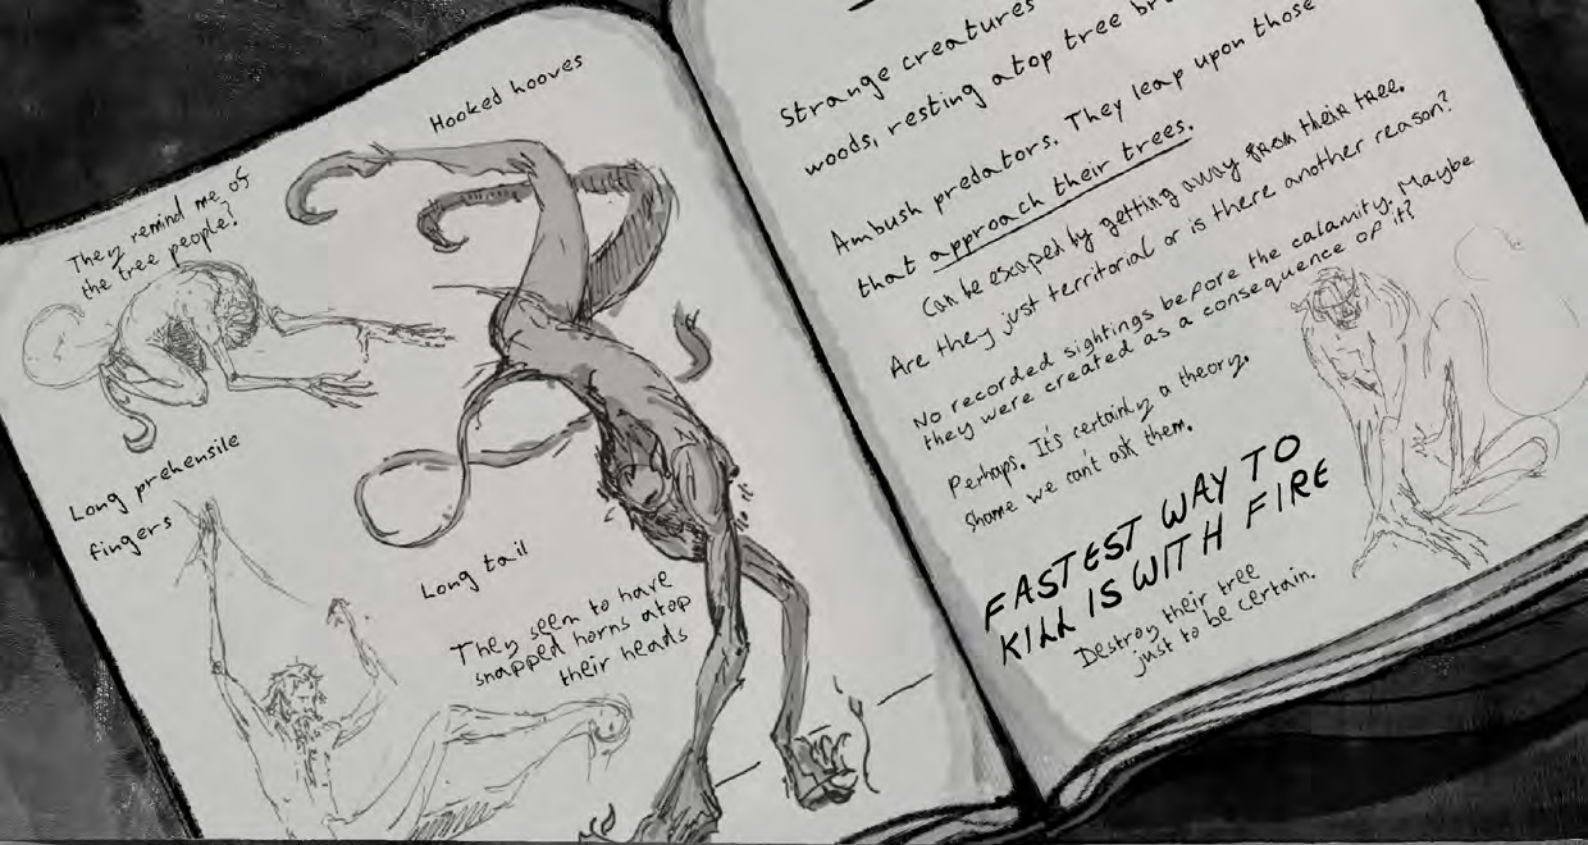 Hooked hooves
They remind me of
the tree people?
Long prehensile
fingers
Long tail
They seem to have
snapped horns atop
their heads
Strange creatures
woods, resting atop tree
Ambush predators. They leap upon those
that approach their trees.
Can be escaped by getting away from their tree.
Are they just territorial or is there another reason?
No recorded sightings before the calamity. Maybe
they were created as a consequence of it?
Perhaps. It's certainly a theory.
Shame we can't ask them.
FASTEST WAY TO
KILL IS WITH FIRE
Destroy their tree
just to be certain.